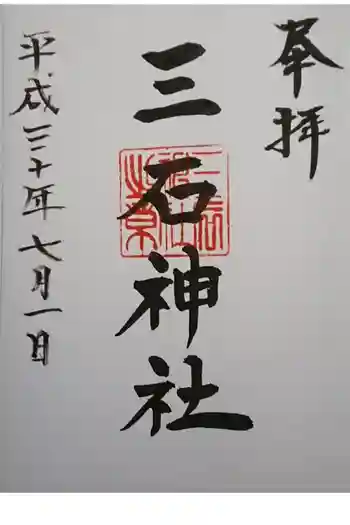 奉拝
三石神社
平成三十年七月一日